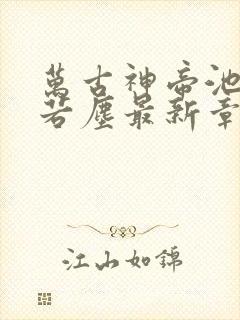 萬古神帝池
若塵最新章
江山如錦